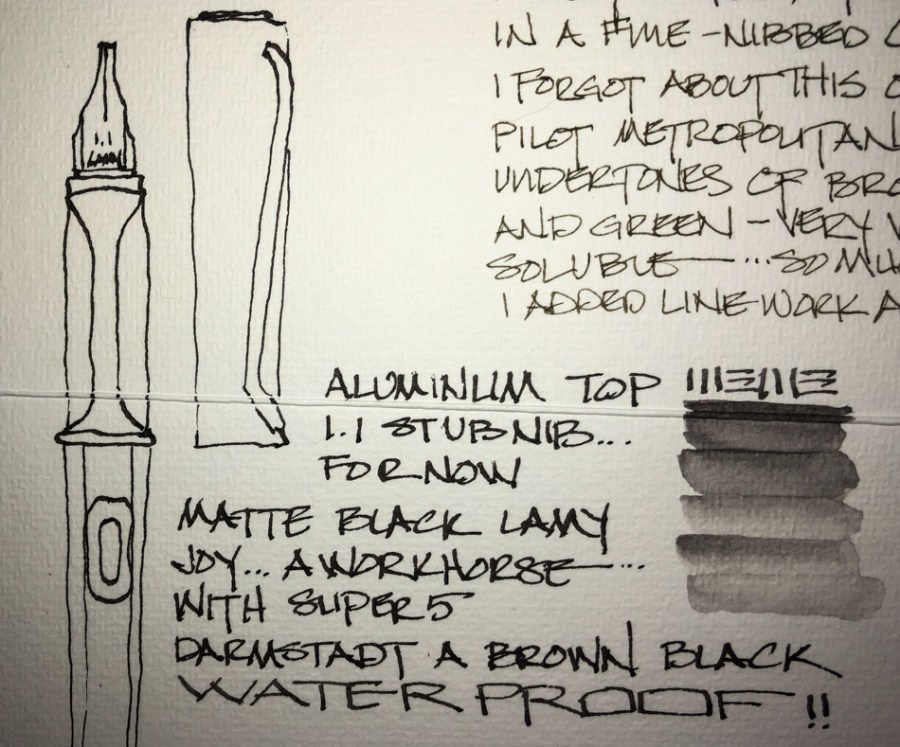 IN A FINE-NIBBED
I FORGOT ABOUT THIS
PILOT METROPOLITAN
UNDERTONES OF BRO
AND GREEN - VERY
SOLUBLE ... SO MUC
I ADDED LINE WORK A
LAMY
ALUMINUM TOP
1.1 STUB NIB...
FOR NOW
MATTE BLACK LAMY
JOY... A WORKHORSE ...
WITH SUPER5
DARMSTADT A BROWN BLACK
WATERPROOF!!